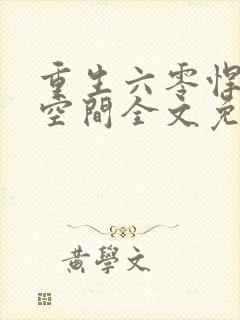 重生六零悍
空間全文免
黃學文